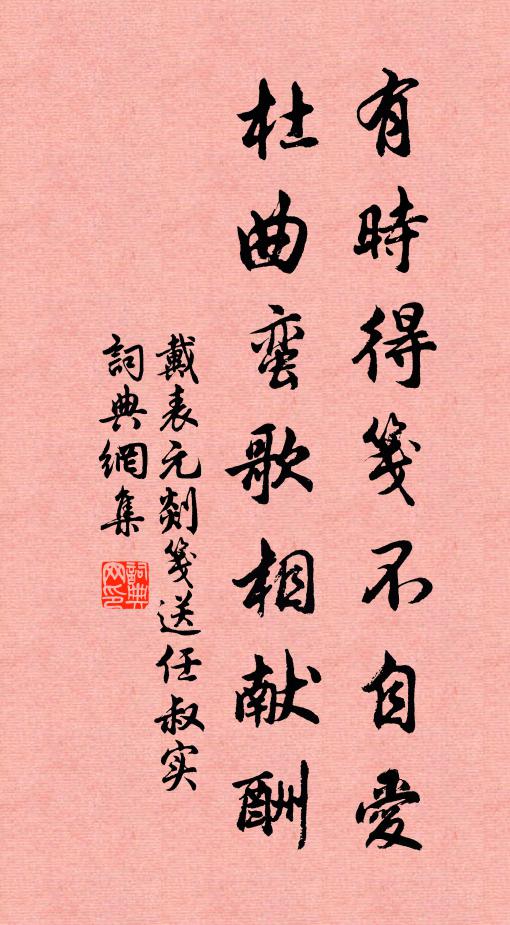 有時得箋不自愛
杜曲蛮歌相献酬
戴表元剡箋送任叔实
詞典網集
詞典網印